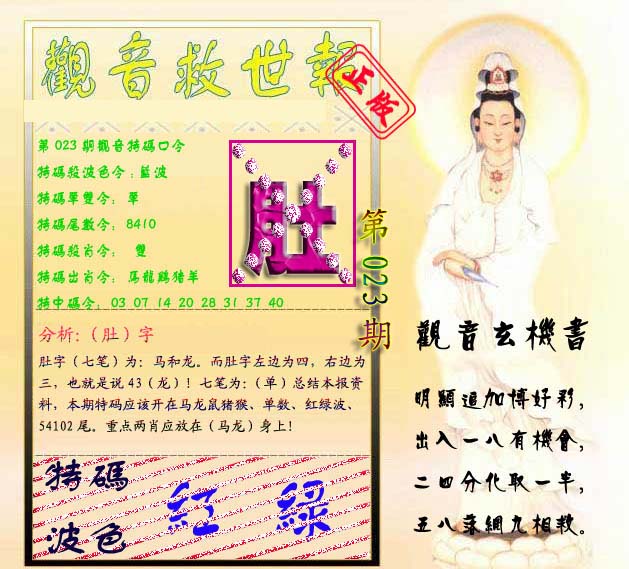 觀音救世報
正版
第023期觀音特碼口令
特碼殺波色令：藍波
特碼單雙令： 單
特碼尾數令： 8410
特碼殺肖令： 雙
特碼出肖令： 馬龍鷄猪羊
特中碼令： 03 07 14 20 28 31 37 40
肚
第023期
分析:（肚）字
肚字（七笔）为：马和龙。而肚字左边为四，右边为
三，也就是说43（龙）！七笔为：（单）总结本报资
料，本期特码应该开在马龙鼠猪猴、单数、红绿波、
54102尾。重点两肖应放在（马龙）身上！
特碼
波色
紅 綠
觀音玄機書
明顯追加博好彩，
出入一八有機會，
二四分化取一半，
五八落網九相救。